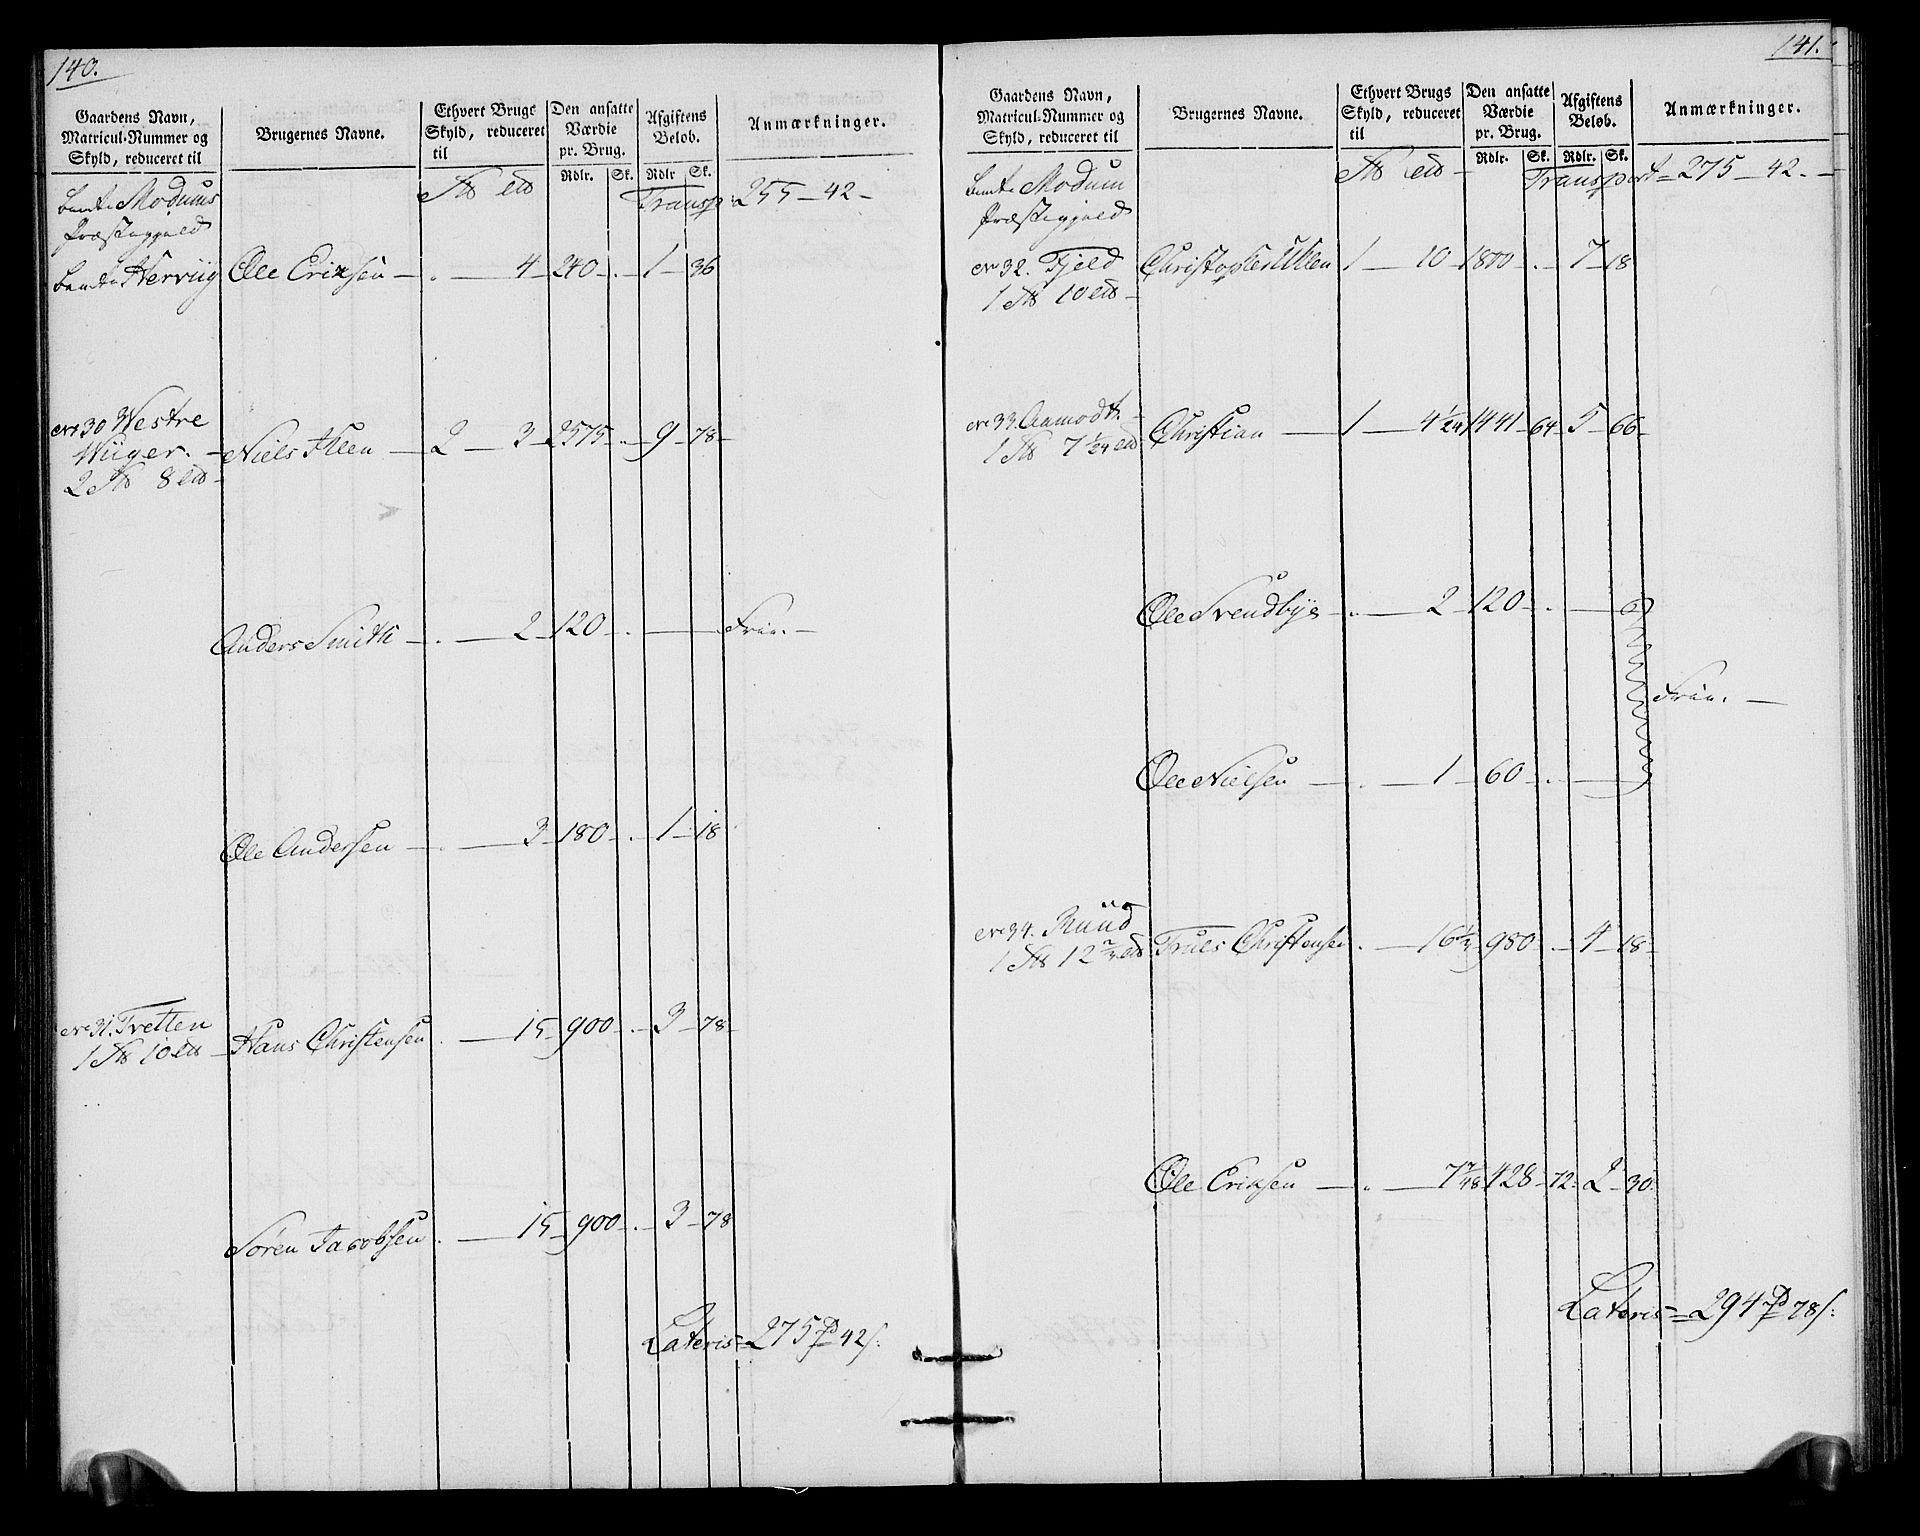 140.
Gaardens Navn, Matricul-Nummer og Skyld, reduceret til | Brugernes Navne. | Ethvert Brugs Skyld, reduceret til | Den ansatte Værdie pr. Brug. Rdlr. Sk. | Afgiftens Beløb. Rdlr Sk. | Anmærkninger.
Modums Transp: 255 – 42 –
Præstegjeld
Ole Erixsen – . — 4 – 240 – . – 1 – 36
No 30 Westre
Wiiger. – Niels Allen – 2 — 3 – 2575 – . – 9 – 78 –
2 8
Anders Smith – . — 2 – 120 – . — Frie. –
Ole Andersen – . — 3 – 180 – . – 1 – 18
No 31. Tretten Hans Christensen . — 15 – 900 – . – 3 – 78 –
1 10
Søren Jacobsen . — 15 – 900 – . – 3 – 78
Lateris = 275 rd 42 s:
141.
Gaardens Navn, Matricul-Nummer og Skyld, reduceret til | Brugernes Navne. | Ethvert Brugs Skyld, reduceret til | Den ansatte Værdie pr. Brug. Rdlr. Sk. | Afgiftens Beløb. Rdlr. Sk. | Anmærkninger.
Modum Transport = 275 – 42 . –
Præstegjeld
No 32. Fjeld Christopher Uhlen 1 — 10 – 1800 – . – 7 – 18
1 10
No 33. Aamodt. – Christian — 1 — 4 1/24 1441 – 64 – 5 – 66 –
1 7 1/24
Ole Svendbye – . — 2 – 120 – . —
Frie. –
Ole Nielsen — . — 1 – 60 – . —
No 34. Ruud Truls Christensen . — 16 1/3 980 – . – 4 – 18 –
1 12
Ole Erixsen — . — 7 7/48 428 – 72 – 2 – 30
Lateris = 294 rd 78 s: